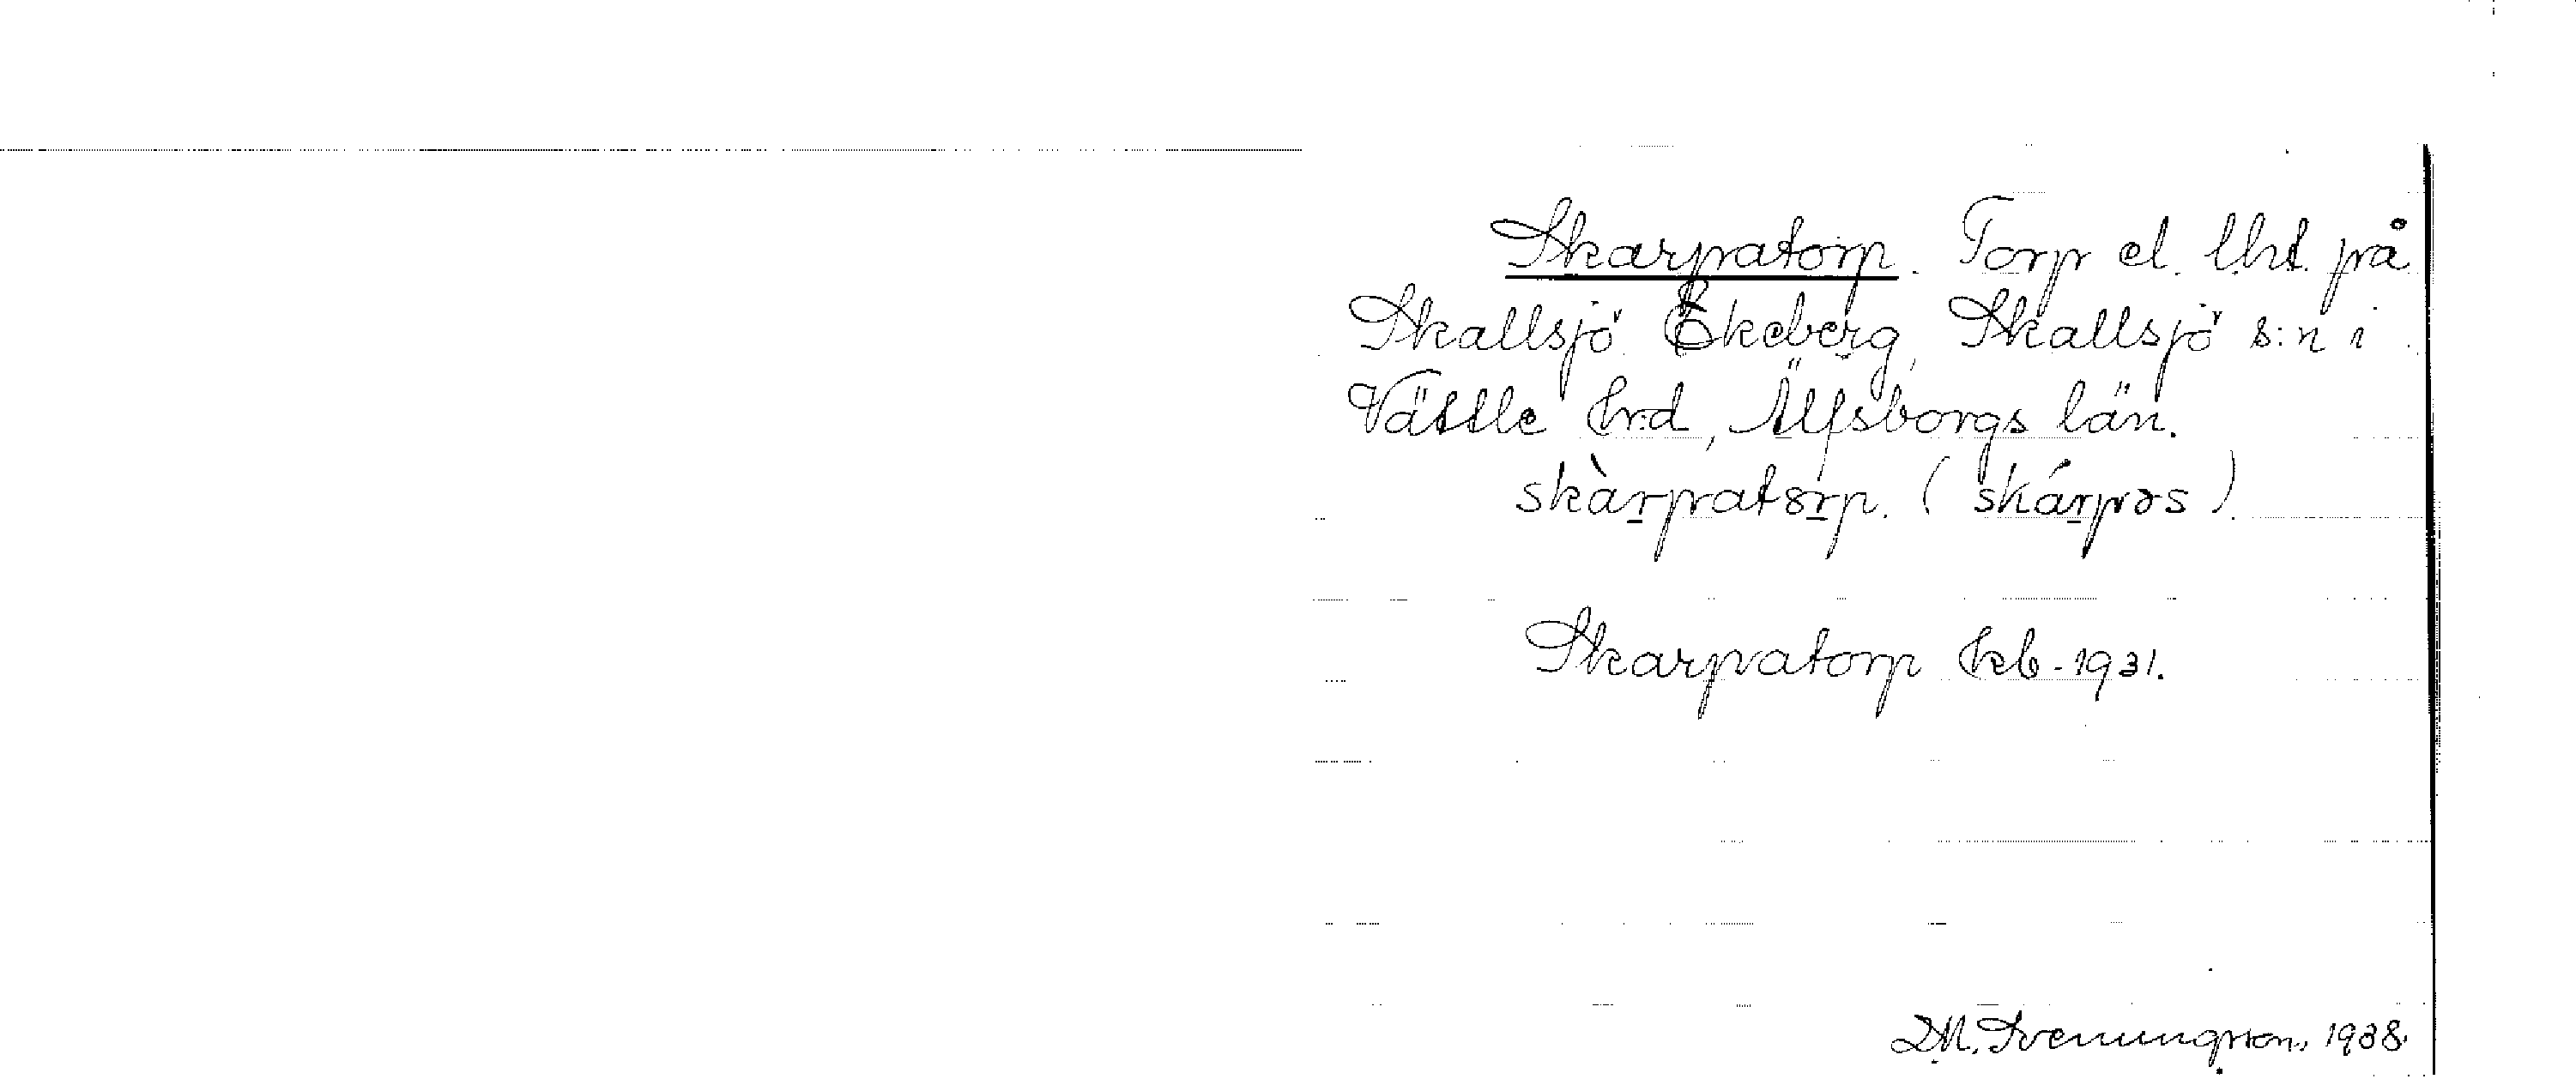 Skarpatorp. Torp el. lht. på
Skallsjö Ekeberg, Skallsjö s:n i
Vättle hrd, Älfsborgs län.
skàrpatørp. (skárpəs).
Skarpatorp hkb-1931.
D.M. Svenungsson, 1938.